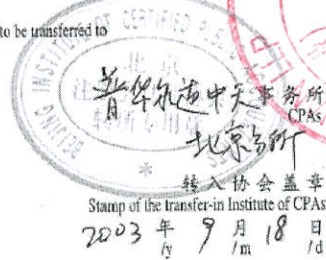 to be transferred to
BEIJING INSTITUTE OF CERTIFIED PUBLIC
普华永道中天事务所
CPAs
北京分所
转入协会盖章
Stamp of the transfer-in Institute of CPAs
2003 年 9 月 18 日
/y /m /d